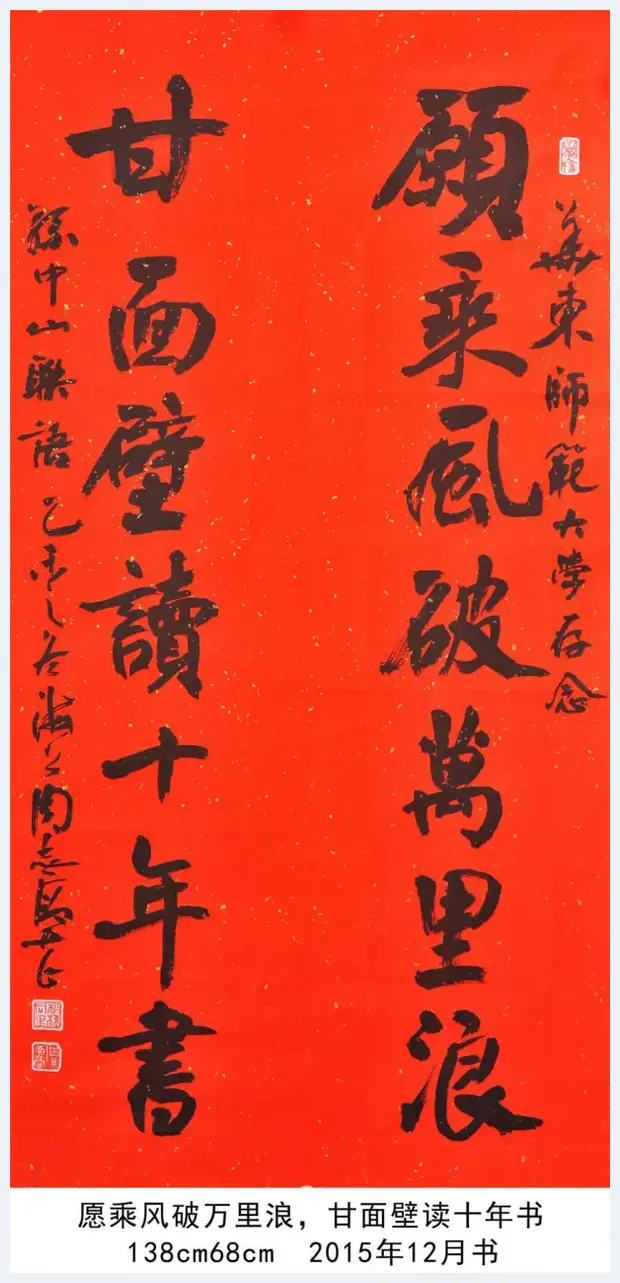 華東師範大学存念
願乘風破萬里浪
甘面壁讀十年書
孫中山聯語 乙未之冬海上周志高
愿乘风破万里浪，甘面壁读十年书
138cm68cm 2015年12月书